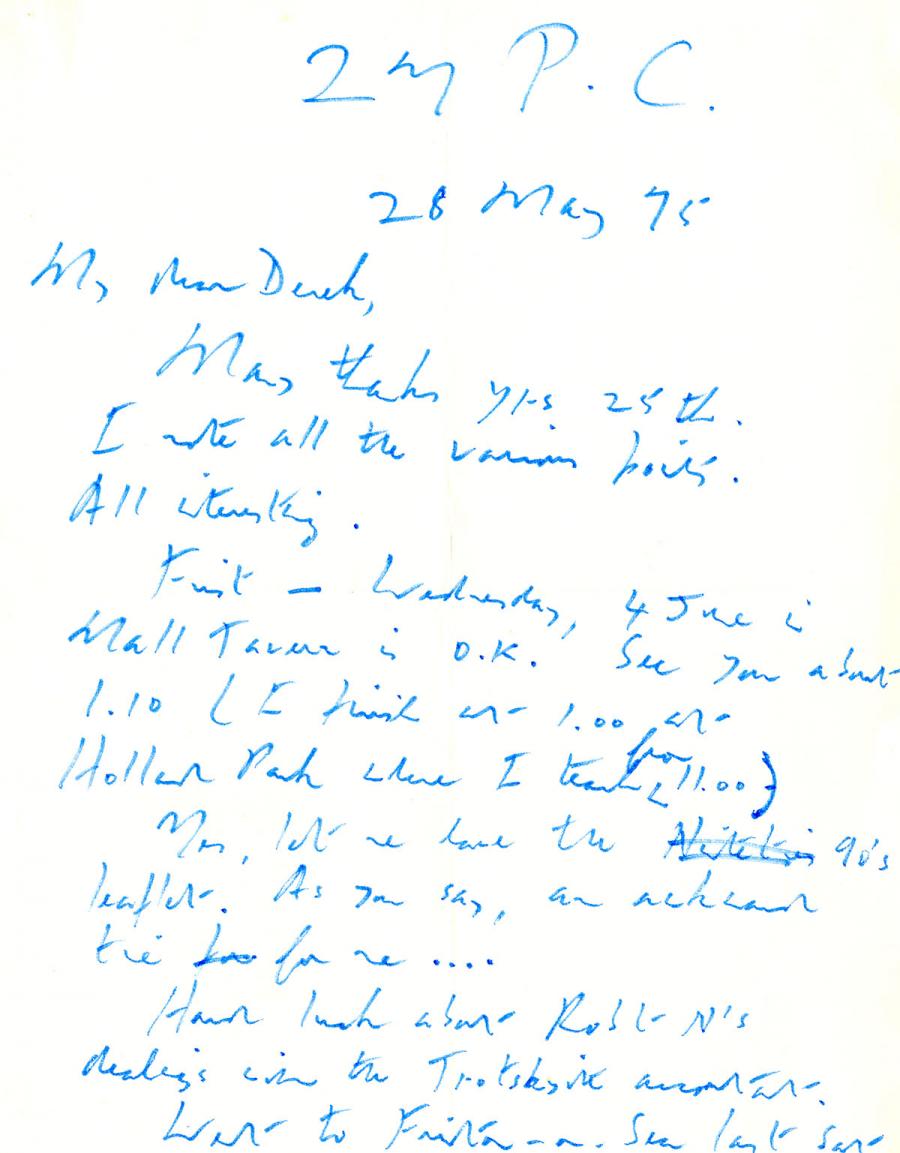 27 P. C.
28 May 75
My dear Derek,
Many thanks yrs 25th.
I note all the various points.
All interesting.
First – Wednesday, 4 June in
Mall Tavern is O.K. See you about
1.10 (I finish at 1.00 at
Holland Park where I teach from 11.00)
Yes, let me have the 90's
leaflet. As you say, an awkward
time for me ....
Hard luck about Robt N's
dealings with the Trotskyite accountant.
Went to Frinton-on-Sea last Sat